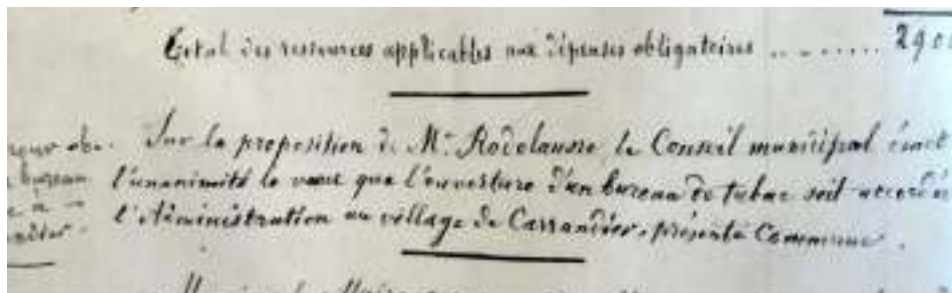 Total des ressources applicables aux dépenses obligatoires ........ 290
Sur la proposition de Mr. Rodelausse, le Conseil municipal émet
bureau l'unanimité le vœu que l'ouverture d'un bureau de tabac soit accordée
l'Administration au village de Carrandier, présente Commune.